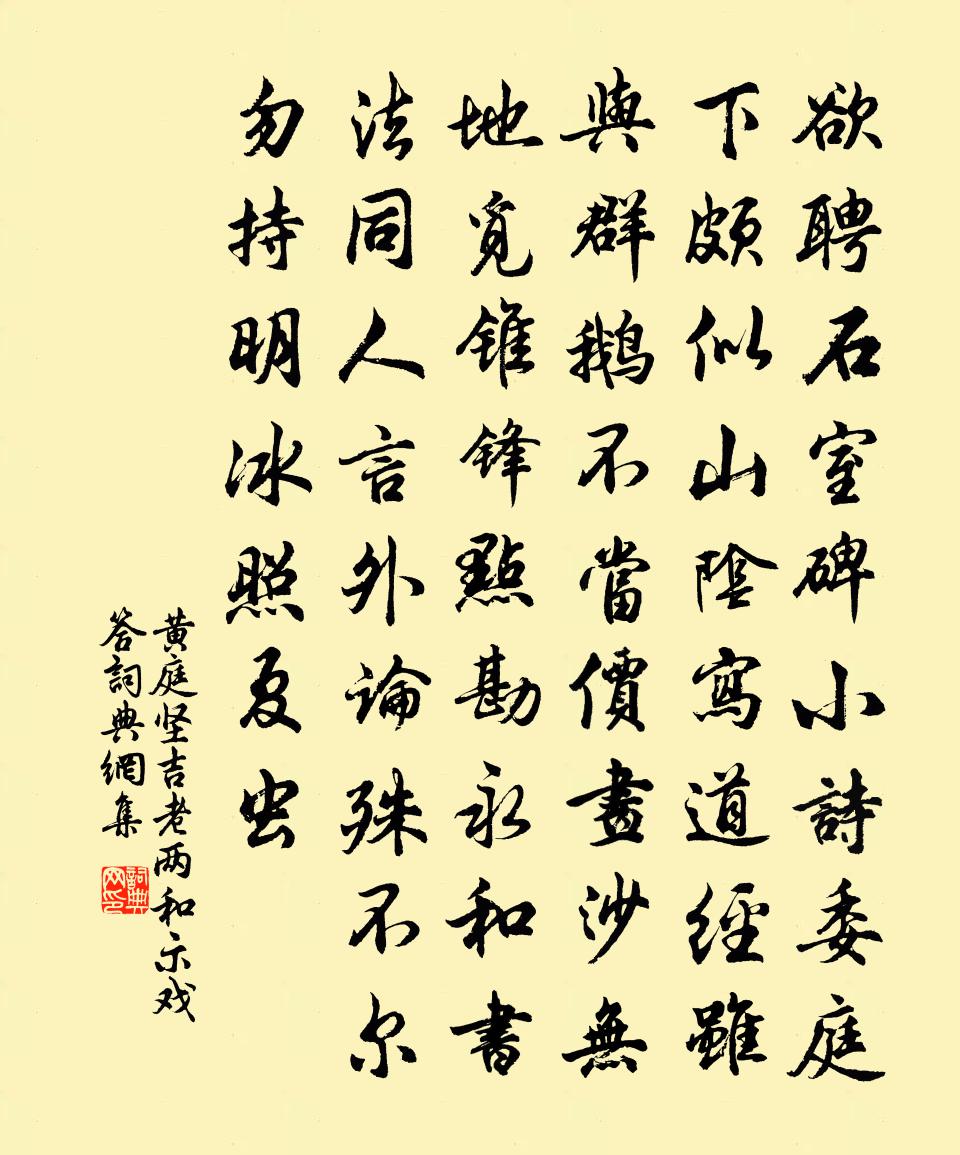 欲聘石室碑小詩委庭
下頗似山陰寫道經雖
與群鵝不當價畫沙無
地覓錐鋒點勘永和書
法同人言外論殊不尔
勿持明冰照夏虫
黄庭坚吉老两和示戏
答詞典網集
詞典网印